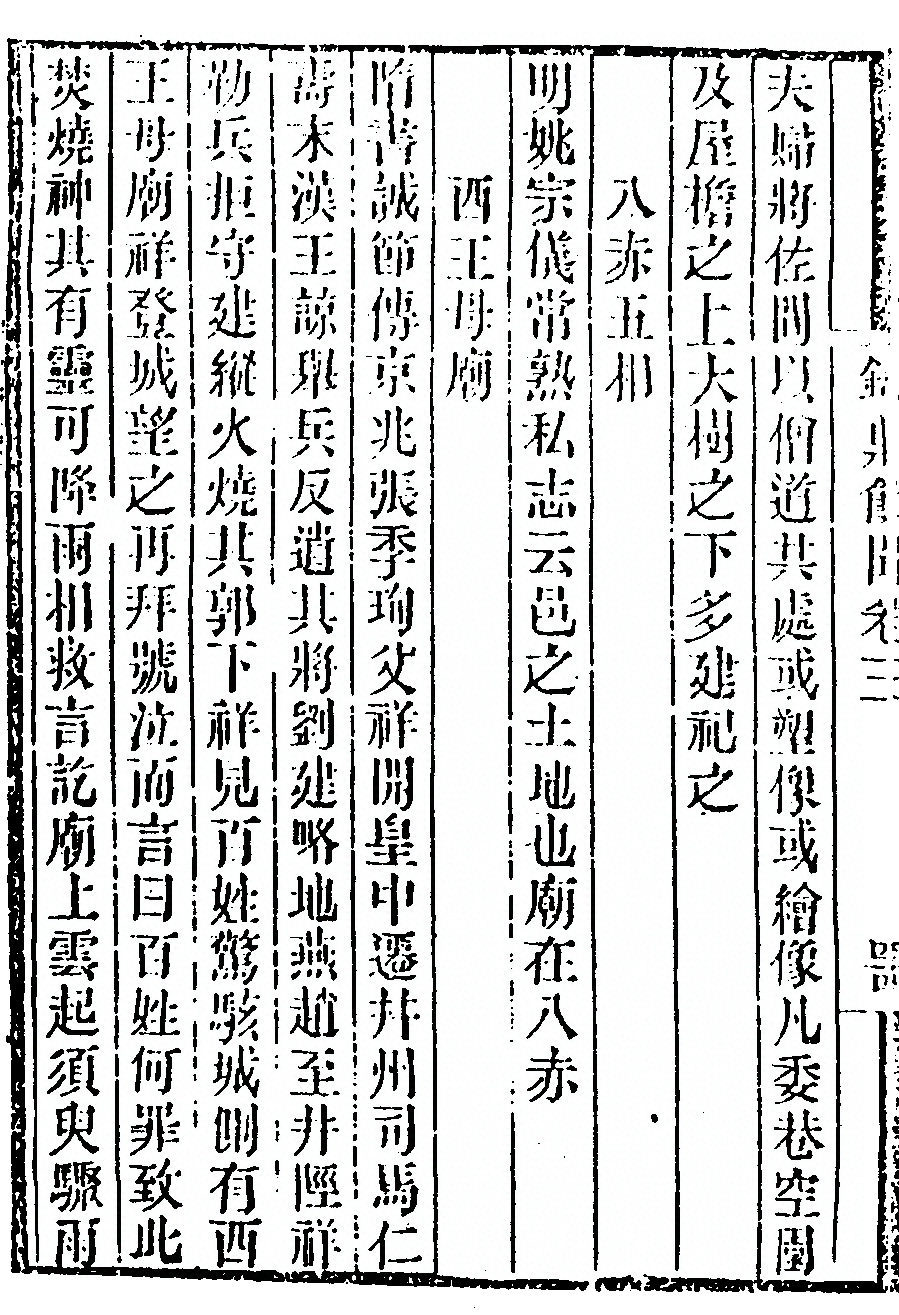 夫婦將佐間以僧道共處或塑像或繪像凡委巷空園
及屋檐之上大樹之下多建祀之
八赤五相
明姚宗儀常熟私志云邑之土地也廟在八赤
西王母廟
隋書誠節傳京兆張季珣父祥開皇中遷幷州司馬仁
壽末漢王諒舉兵反遣其將劉建略地燕趙至井陘祥
勒兵拒守建縱火燒其郭下祥見百姓驚駭城側有西
王母廟祥登城望之再拜號泣而言曰百姓何罪致此
焚燒神其有靈可降雨相救言訖廟上雲起須臾驟雨